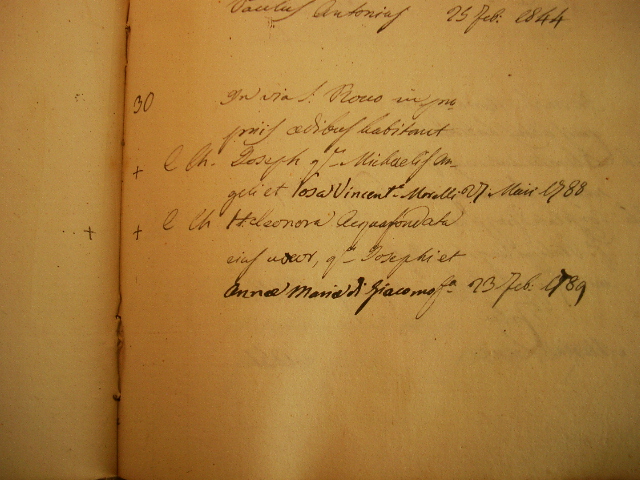 Paulus Antonius 25 Feb: 1844
30 In via S. Rocco in pro
priis ædibus habitant
+ C Ch. Joseph qm Michaelis An-
geli et Rosa Vincenta Morelli 27 Maii 1788
+ + C Ch Heleonora Acquafondata
eius uxor, qm Josephi et
Annæ Maria di Giacomo fa 23 Feb: 1789